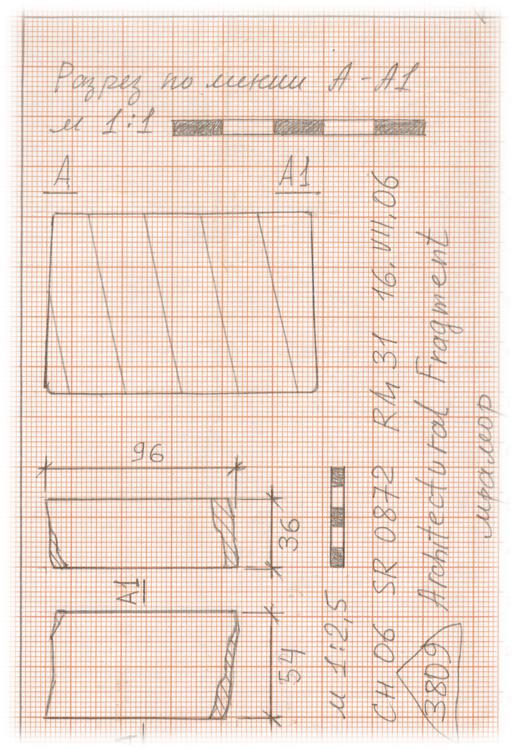 Разрез по линии А-А1
м 1:1
А А1
96
36
А1
54
м 1:2,5
СН 06 SR 0872 RM 31 16.VII.06
3809 Architectural Fragment
мрамор